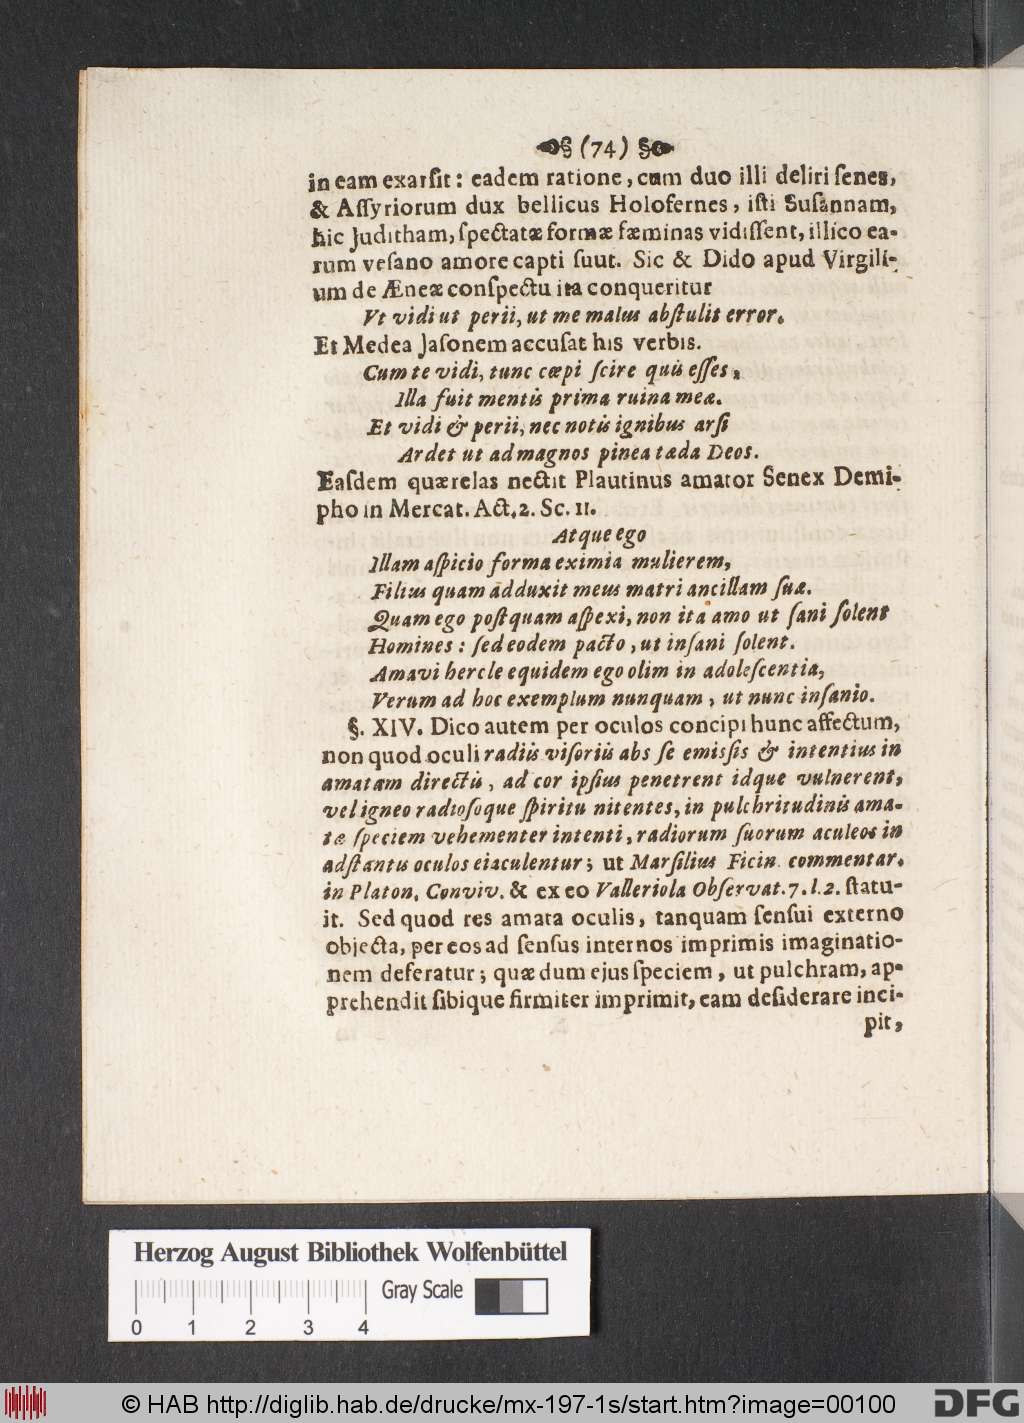 (74)
in eam exarſit: eadem ratione, cum duo illi deliri ſenes,
& Aſſyriorum dux bellicus Holofernes, iſti Suſannam,
hic Juditham, ſpectatæ formæ fæminas vidiſſent, illico ea-
rum veſano amore capti ſuut. Sic & Dido apud Virgili-
um de Æneæ conſpectu ita conqueritur
Vt vidi ut perii, ut me malus abſtulit error.
Et Medea Jaſonem accuſat his verbis.
Cum te vidi, tunc cœpi ſcire quis eſſes,
Illa fuit mentis prima ruina meæ.
Et vidi & perii, nec notis ignibus arſi
Ardet ut ad magnos pinea tæda Deos.
Eaſdem quærelas nectit Plautinus amator Senex Demi-
pho in Mercat. Act. 2. Sc. 11.
Atque ego
Illam aſpicio forma eximia mulierem,
Filius quam adduxit meus matri ancillam ſuæ.
Quam ego poſtquam aſpexi, non ita amo ut ſani ſolent
Homines: ſed eodem pacto, ut inſani ſolent.
Amavi hercle equidem ego olim in adoleſcentia,
Verum ad hoc exemplum nunquam, ut nunc inſanio.
§. XIV. Dico autem per oculos concipi hunc affectum,
non quod oculi radiis viſoriis abs ſe emiſſis & intentius in
amatam directis, ad cor ipſius penetrent idque vulnerent,
vel igneo radioſoque ſpiritu nitentes, in pulchritudinis ama-
tæ ſpeciem vehementer intenti, radiorum ſuorum aculeos in
adſtantis oculos eiaculentur; ut Marſilius Ficin. commentar.
in Platon. Conviv. & ex eo Valleriola Obſervat. 7. l. 2. ſtatu-
it. Sed quod res amata oculis, tanquam ſenſui externo
objecta, per eos ad ſenſus internos imprimis imaginatio-
nem deferatur; quæ dum ejus ſpeciem, ut pulchram, ap-
prehendit ſibique firmiter imprimit, eam deſiderare inci-
pit,
Herzog August Bibliothek Wolfenbüttel
Gray Scale
0 1 2 3 4
© HAB http://diglib.hab.de/drucke/mx-197-1s/start.htm?image=00100
DFG